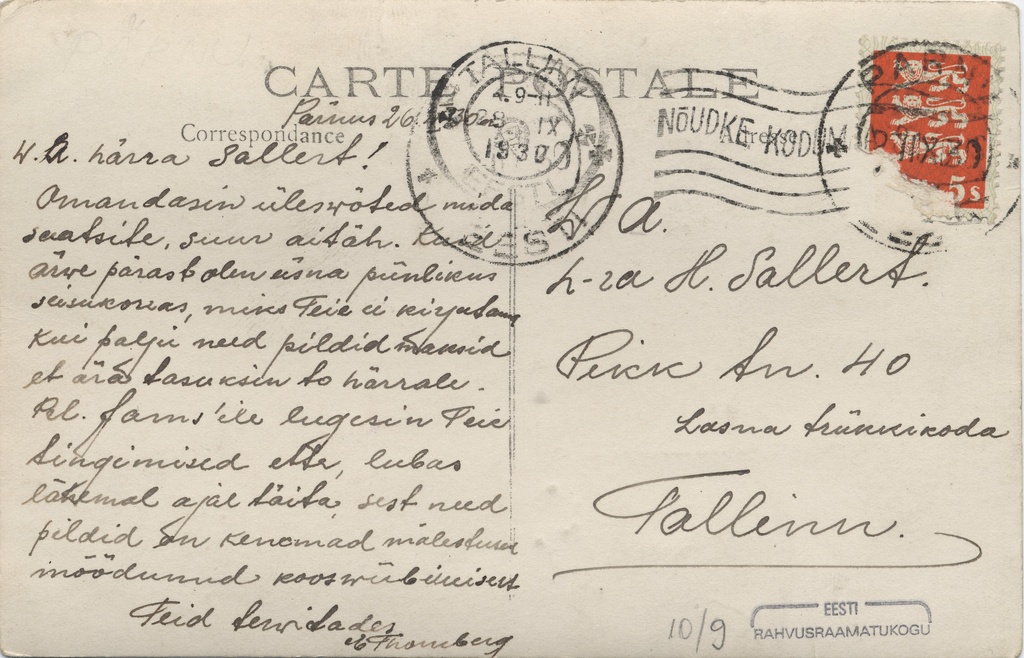 CARTE POSTALE
Correspondance
TALLINN
1930
EESTI
NÕUDKE KODUM
PÄRNU
5s
Pärnus 26.
W. A. härra Sallert!
Omandasin üleswõted mida
saatsite, suur aitäh. Kuid
ärwe pärast olen üsna piinlikus
seisukorras, miks Teie ei kirjutanud
kui palju need pildid maksid
et ära tasuksin to härrale.
Prl. Jams'ile lugesin Teie
tingimised ette, lubas
lähemal ajal täita, sest need
pildid on kenamad mälestused
möödunud kooswiibimisest
Teid terwitades
Thomberg
L. a.
h-ra H. Sallert.
Pikk tn. 40
Lasna trükkikoda
Tallinn.
10/9
EESTI
RAHVUSRAAMATUKOGU